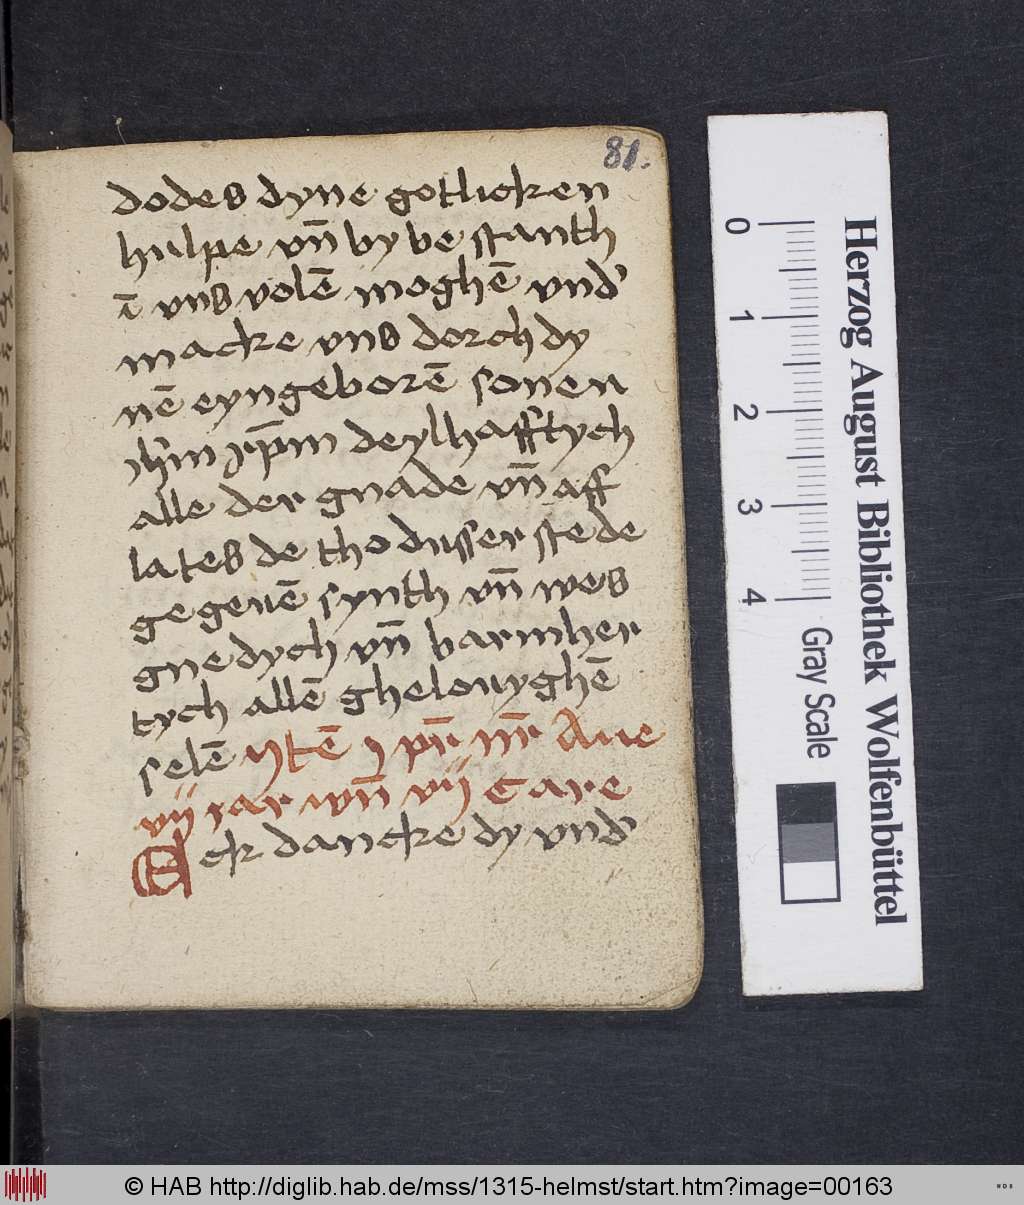 81.
dodes dyne gotlicken
hulpe vn̄ by be stanth
ī vns volē moghē vnd'
macke vns dorch dy
nē eyngeborē sonen
ih̄m xp̄m deylhafftych
alle der gnade vn̄ aff
lates de tho dusser stede
gegeuē synth vn̄ wes
gnedych vn̄ barmher
tych allē ghelouyghē
selē pr̄ nr̄ Aue
vij iar vn̄ vij Care
Eck dancke dy vnd'
0 1 2 3 4
Gray Scale
Herzog August Bibliothek Wolfenbüttel
© HAB http://diglib.hab.de/mss/1315-helmst/start.htm?image=00163